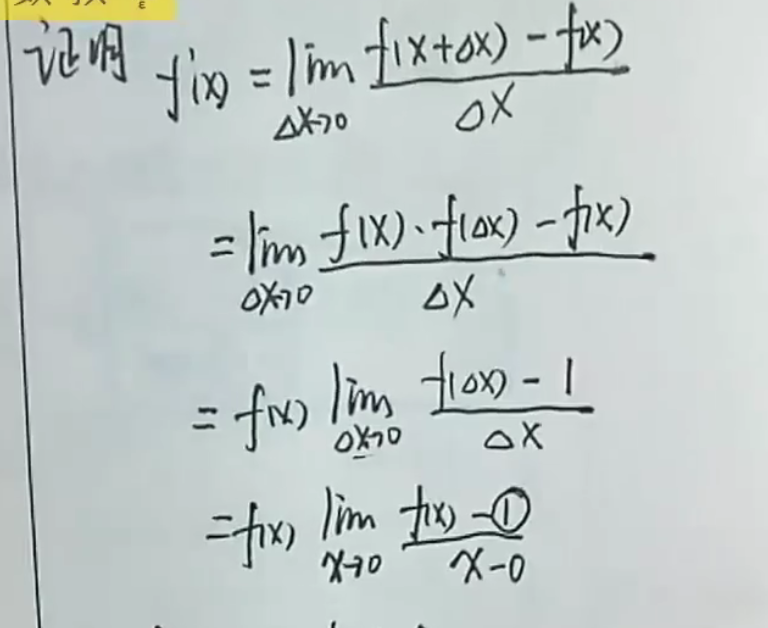 证明 f'(x) = lim Δx→0 f(x+Δx) - f(x) / Δx
= lim Δx→0 f(x)·f(Δx) - f(x) / Δx
= f(x) lim Δx→0 f(Δx) - 1 / Δx
= f(x) lim x→0 f(x) - ① / x-0